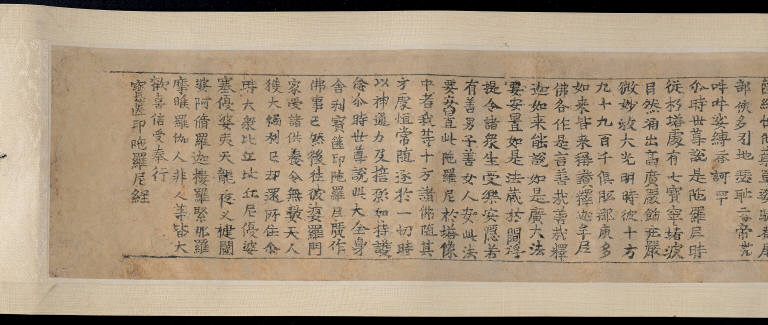 部侠多引地瑟恥二合帝
吽吽娑縛二合訶
尒時世尊說是陁羅尼時
從朽塔處有七寶窣堵波
自然涌出高廣嚴飾莊嚴
微妙放大光明時彼十方
九十九百千俱胝那庾多
如來皆來稱讚釋迦牟尼
佛各作是言善哉善哉釋
迦如來能說如是廣大法
要安置如是法藏於閻浮
提令諸衆生受樂安隱若
有善男子善女人安此法
要安置此陁羅尼於塔像
中者我等十方諸佛隨其
方處恒常隨逐於一切時
以神通力及誓願加持護
念尒時世尊說此大全身
舍利寶篋印陁羅尼廣作
佛事已然後往彼婆羅門
家受諸供養令無數天人
獲大福利已却還所住尒
時大衆比丘比丘尼優婆
塞優婆夷天龍夜叉揵闥
婆阿修羅迦樓羅緊那羅
摩睺羅伽人非人等皆大
歡喜信受奉行
寶篋印陁羅尼經